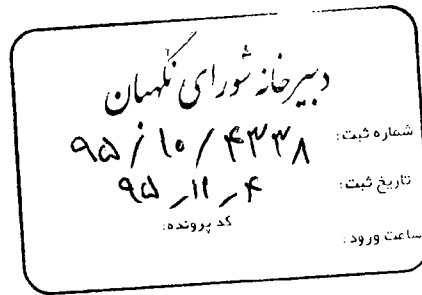 دبیرخانه شورای نگهبان
شماره ثبت: ۹۵/۱۰/۴۳۳۸
تاریخ ثبت: ۹۵-۱۱-۴
کد پرونده:
ساعت ورود: